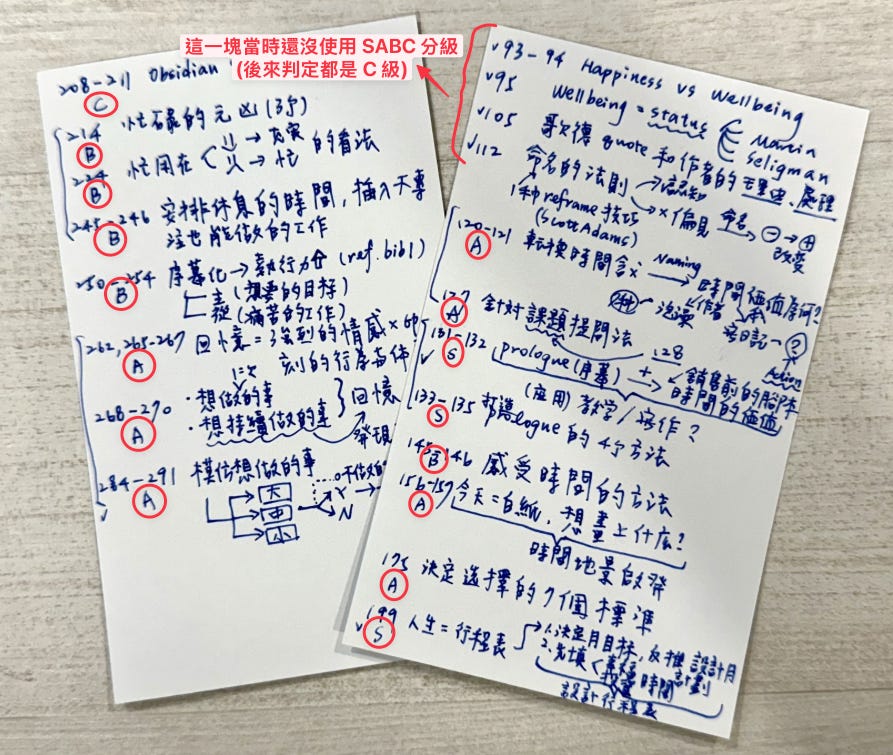 這一塊當時還沒使用 SABC 分級
(後來判定都是 C 級)
208-211 Obsidian
C
214 忙碌的元凶
B
234 忙用在 的看法
B
→ 充實
→ 忙
245-246 安排休息的時間，插入不專
B
注也能做的工作
250-254 序幕化→執行力 (ref. bib1)
B
(想要的目標)
(痛苦的工作)
262, 265-267 回憶=強烈的情感×
A
刻的行為
268-270 ・想做的事
A
・想持續做的事
回憶
發現
284-291 模仿想做的事
A
大
中
小
Y
N
✓93-94 Happiness vs Wellbeing
✓95 Wellbeing = status
Martin
Seligman
✓105 歌德 quote 和作者的 理由、處理
✓112 命名的法則
→認知
→×偏見
命名
⊖→⊕
改變
1種 reframe 技巧
(Scott Adams)
120-121 転換時間
A
Naming
時間価値
127 針對課題提問法
A
Action
131-132 prologue (序幕)
✓ S
128
+
→銷售前的腳本
時間的価値
(应用) 教学/寫作?
133-135 打造logue的4个方法
S
145-146 感受時間的方法
B
156-157 今天=白紙，想畫上什麼?
A
時間地景啟發
175 決定選擇的7個標準
A
✓199 人生=行程表
S
1.決定月目标，反推設計月
計劃
2.先填
時間
設計行程表